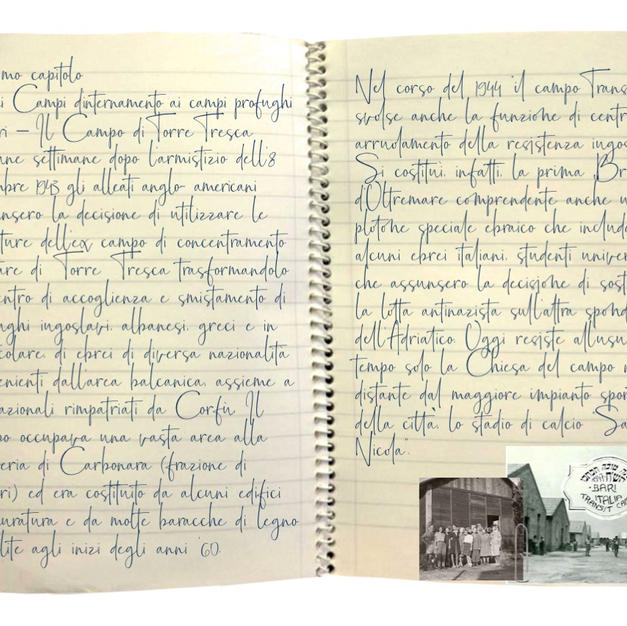 mo capitolo
i Campi d'internamento ai campi profughi
ri – Il Campo di Torre Tresca
ne settimane dopo l'armistizio dell'8
mbre 1943 gli alleati anglo-americani
nsero la decisione di utilizzare le
ture dell'ex campo di concentramento
are di Torre Tresca trasformandolo
entro di accoglienza e smistamento di
ughi iugoslavi, albanesi, greci e in
colare, di ebrei di diversa nazionalità
enienti dall'area balcanica, assieme a
azionali rimpatriati da Corfù. Il
po occupava una vasta area alla
eria di Carbonara (frazione di
ri) ed era costituito da alcuni edifici
uratura e da molte baracche di legno
lite agli inizi degli anni '60.
Nel corso del 1944 il campo Trans
svolse anche la funzione di centr
arruolamento della resistenza iugos
Si costituì, infatti, la prima Br
d'Oltremare comprendente anche u
plotone speciale ebraico che include
alcuni ebrei italiani, studenti univer
che assunsero la decisione di sost
la lotta antinazista sull'altra spond
dell'Adriatico. Oggi resiste all'usu
tempo solo la Chiesa del campo n
distante dal maggiore impianto spor
della città, lo stadio di calcio Sa
Nicola".
BARI
ITALIA
TRANSIT CAM